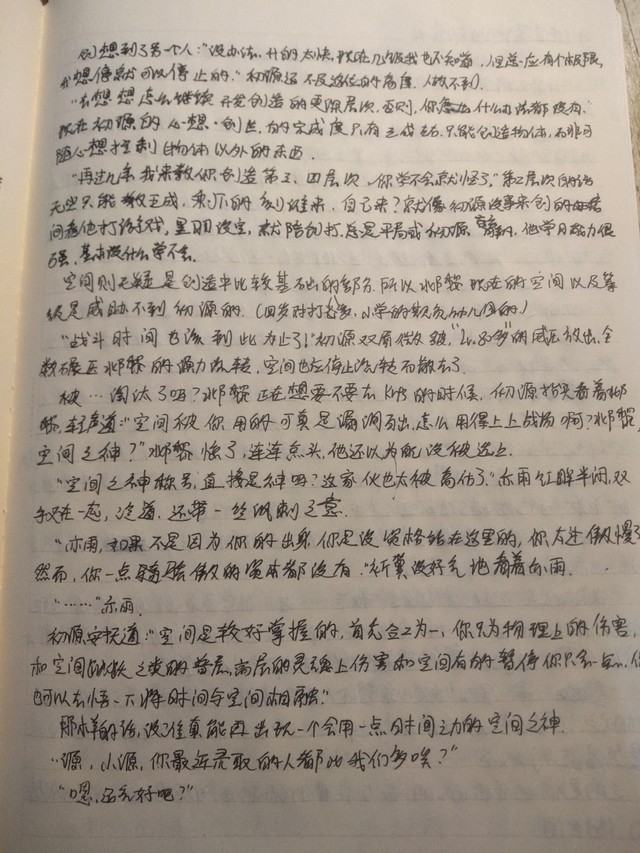 到想到了另一个人:"没办法,升的太快,现在几级我也不知道,但是应有个极限,
我想停就可以停止的。"初源还不及这位的高度,做不到。
"去想想怎么继续开发创造的更深层次,否则,你怎么什么办法都没有。
现在初源的心想·创造,的完成度只有三成左右,只能创造物体,而非可
随心想控制物体以外的东西。
"再过几年我来教你创造第三、四层次,你学不会就怪了。"第二层次的话
无空只能教三成,剩下的到谁来,自己来?就像初源没事来创的
间看他打游戏,里羽没空,就陪创打,总是平局或初源赢的,他学习能力很
强,基本没什么学不会。
空间则无疑是创造中比较基础的部分,所以邶黎现在的空间以及等
级是威胁不到初源的。(四岁对打 多,小学的欺负幼儿园的)
"战斗时间也该到此为止了!"初源双眉微皱," "的威压放出,全
数碾压邶黎的源力流转,空间也在停止流转而散去了。
被…淘汰了吗?邶黎正在想要不要去 的时候,初源抬头看着邶
黎,轻声道:"空间被你用的可真是漏洞百出,怎么用得上上战场啊?邶黎,
空间之神?"邶黎惊了,连连点头,他还以为 没被选上。
"空间之神称号,直接是神吗?这家伙也太被高估了。"亦雨红眸半闭,双
手 在一起,冷道,还带一丝讽刺之意。
"亦雨,如果不是因为你的出身,你是没资格站在这里的,你太过傲慢了
然而,你一点骄傲的资本都没有。"祈翼没好气地看着亦雨。
"……"亦雨。
初源安抚道:"空间是较好掌握的,首先合二为一,你只为物理上的伤害,
和空间 之类的普层,高层的灵魂上伤害和空间有的暂停你只会一点,你
也可以去悟一下将时间与空间相融。"
那样的话,没准真能再出现一个会用一点时间之力的空间之神。
"源,小源,你最近录取的人都比我们多唉?"
"嗯,还好吧?"